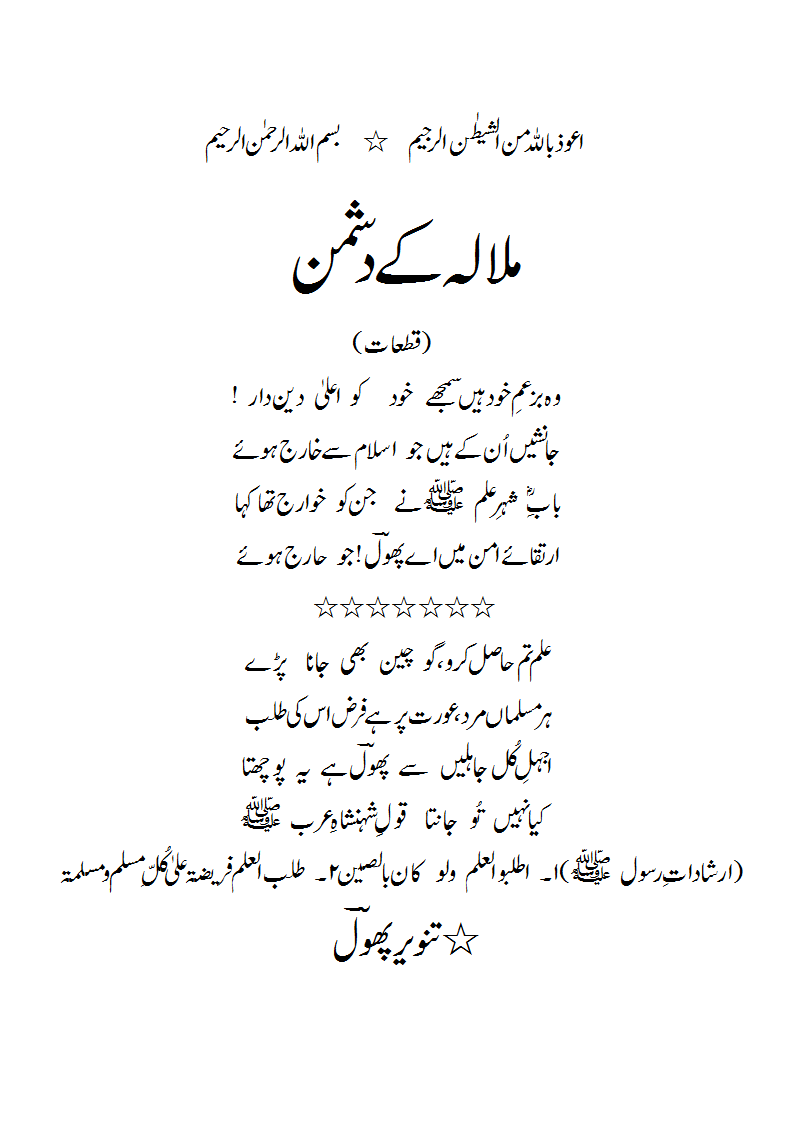 اعوذ باللہ من الشیطٰن الرجیم ☆ بسم اللہ الرحمٰن الرحیم
ملالہ کے دشمن
(قطعات)
وہ بزعمِ خود ہیں سمجھے خود کو اعلیٰ دین دار !
جانشیں اُن کے ہیں جو اسلام سے خارج ہوئے
بابِؓ شہرِ علم ﷺ نے جن کو خوارج تھا کہا
ارتقائے امن میں اے پھولؔ ! جو حارج ہوئے
☆☆☆☆☆☆☆
علم تم حاصل کرو، گو چین بھی جانا پڑے
ہر مسلماں مرد، عورت پر ہے فرض اس کی طلب
اجہلِ کُل جاہلیں سے پھولؔ ہے یہ پوچھتا
کیا نہیں تُو جانتا قولِ شہنشاہِ عرب ﷺ
(ارشاداتِ رسول ﷺ) ۱۔ اطلبو العلم ولو کان بالصین ۲۔ طلب العلم فریضۃ علیٰ کُلِّ مسلم و مسلمۃ
☆ تنویر پھولؔ